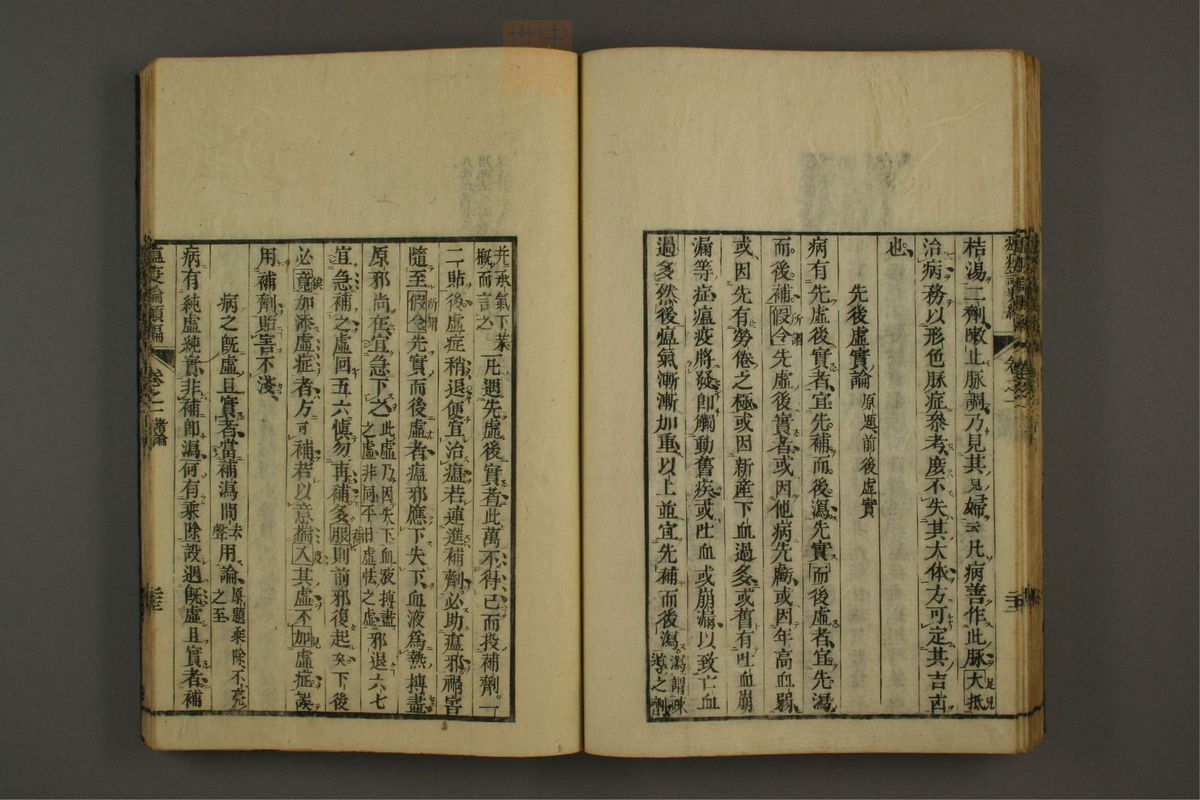 桔湯二劑嗽止脉調乃見其婦云凡病善作此脉大抵
治病務以形色脉症參考庶不失其大体方可定其吉凶
也
先後虛實論 原題前後虛實
病有先虛後實者宜先補而後瀉先實而後虛者宜先瀉
而後補假令先虛後實者或因他病先虧或因年高血弱
或因先有勞倦之極或因新産下血過多或舊有吐血崩
漏等症瘟疫將發即觸動舊疾或吐血或崩漏以致亡血
過多然後瘟氣漸漸加重以上並宜先補而後瀉瀉謂疎導之劑
并承氣下藥概而言之凡遇先虛後實者此萬不得已而投補劑一
二貼後虛症稍退便宜治瘟若連進補劑必助瘟邪禍害
隨至假令先實而後虛者瘟邪應下失下血液爲熱摶盡
原邪尚在宜急下之此虛乃因失下血液摶盡之虛非同平日虛怯之虛邪退六七
宜急補之虛回五六慎勿再補多服則前邪復起矣下後
必竟加添虛症者方可補若以意揣入其虛不加虛症誤
用補劑貽害不淺
病之既虛且實者當補瀉間去聲用論 原題乘除不莞之至
病有純虛純實非補即瀉何有乘除設遇既虛且實者補
瘟疫論類編 卷之一 諸論